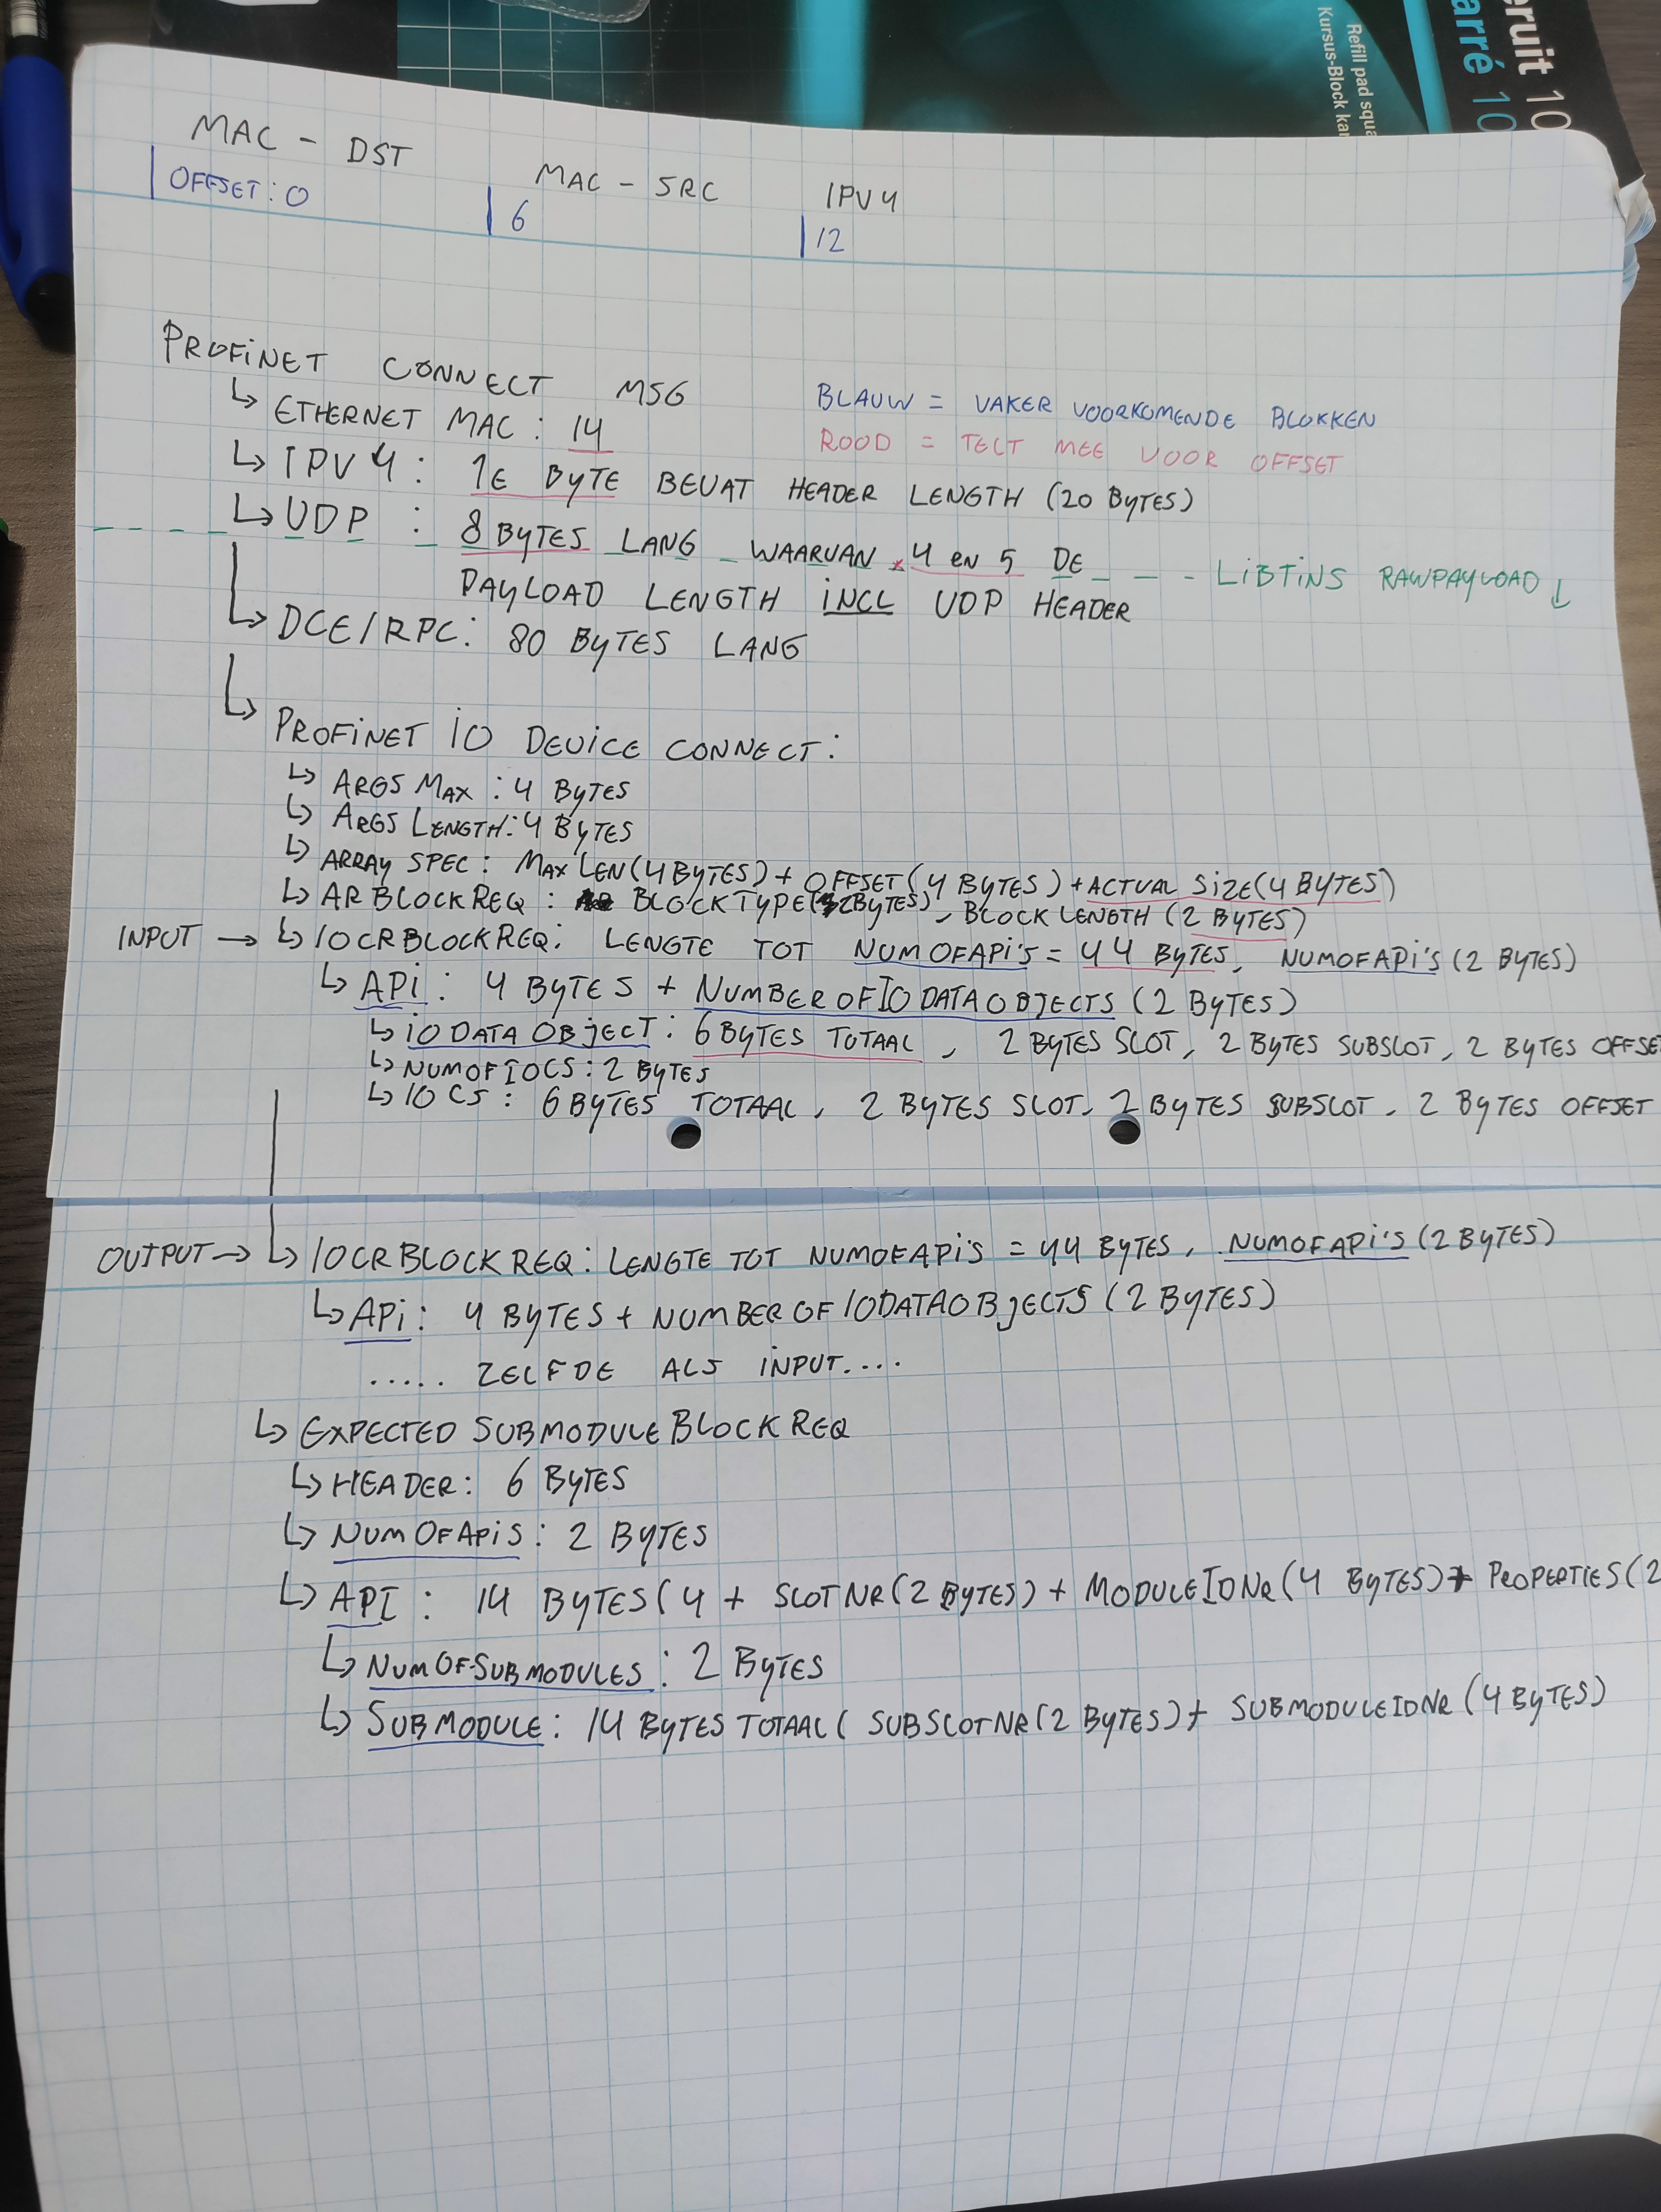 eruit 10
arré 10
Refill pad squa
Kursus-Block kar
MAC - DST
MAC - SRC
IPV4
OFFSET: 0
6
12
PROFINET CONNECT MSG
BLAUW = VAKER VOORKOMENDE BLOKKEN
↳ ETHERNET MAC: 14
ROOD = TELT MEE VOOR OFFSET
↳ IPV4: 1E BYTE BEVAT HEADER LENGTH (20 BYTES)
↳ UDP : 8 BYTES LANG WAARVAN 4 en 5 DE
LIBTINS RAWPAYLOAD ↓
PAYLOAD LENGTH INCL UDP HEADER
↳ DCE/RPC: 80 BYTES LANG
↳ PROFINET IO DEVICE CONNECT:
↳ ARGS MAX : 4 BYTES
↳ ARGS LENGTH: 4 BYTES
↳ ARRAY SPEC: MAX LEN (4 BYTES) + OFFSET (4 BYTES) + ACTUAL SIZE (4 BYTES)
↳ AR BLOCK REQ : BLOCKTYPE (2 BYTES), BLOCK LENGTH (2 BYTES)
INPUT → ↳ IOCR BLOCK REQ: LENGTE TOT NUMOFAPI'S = 44 BYTES, NUMOFAPI'S (2 BYTES)
↳ API: 4 BYTES + NUMBEROFIODATAOBJECTS (2 BYTES)
↳ IO DATA OBJECT: 6 BYTES TOTAAL, 2 BYTES SLOT, 2 BYTES SUBSLOT, 2 BYTES OFFSE
↳ NUMOFIOCS: 2 BYTES
↳ IOCS: 6 BYTES TOTAAL, 2 BYTES SLOT, 2 BYTES SUBSLOT, 2 BYTES OFFSET
OUTPUT → ↳ IOCR BLOCK REQ: LENGTE TOT NUMOFAPI'S = 44 BYTES, NUMOFAPI'S (2 BYTES)
↳ API: 4 BYTES + NUMBER OF IODATAOBJECTS (2 BYTES)
..... ZELFDE ALS INPUT....
↳ EXPECTED SUBMODULE BLOCK REQ
↳ HEADER: 6 BYTES
↳ NUMOFAPIS: 2 BYTES
↳ API: 14 BYTES (4 + SLOTNR (2 BYTES) + MODULEIDNR (4 BYTES) + PROPERTIES (2
↳ NUMOFSUBMODULES: 2 BYTES
↳ SUBMODULE: 14 BYTES TOTAAL ( SUBSLOTNR (2 BYTES) + SUBMODULEIDNR (4 BYTES)